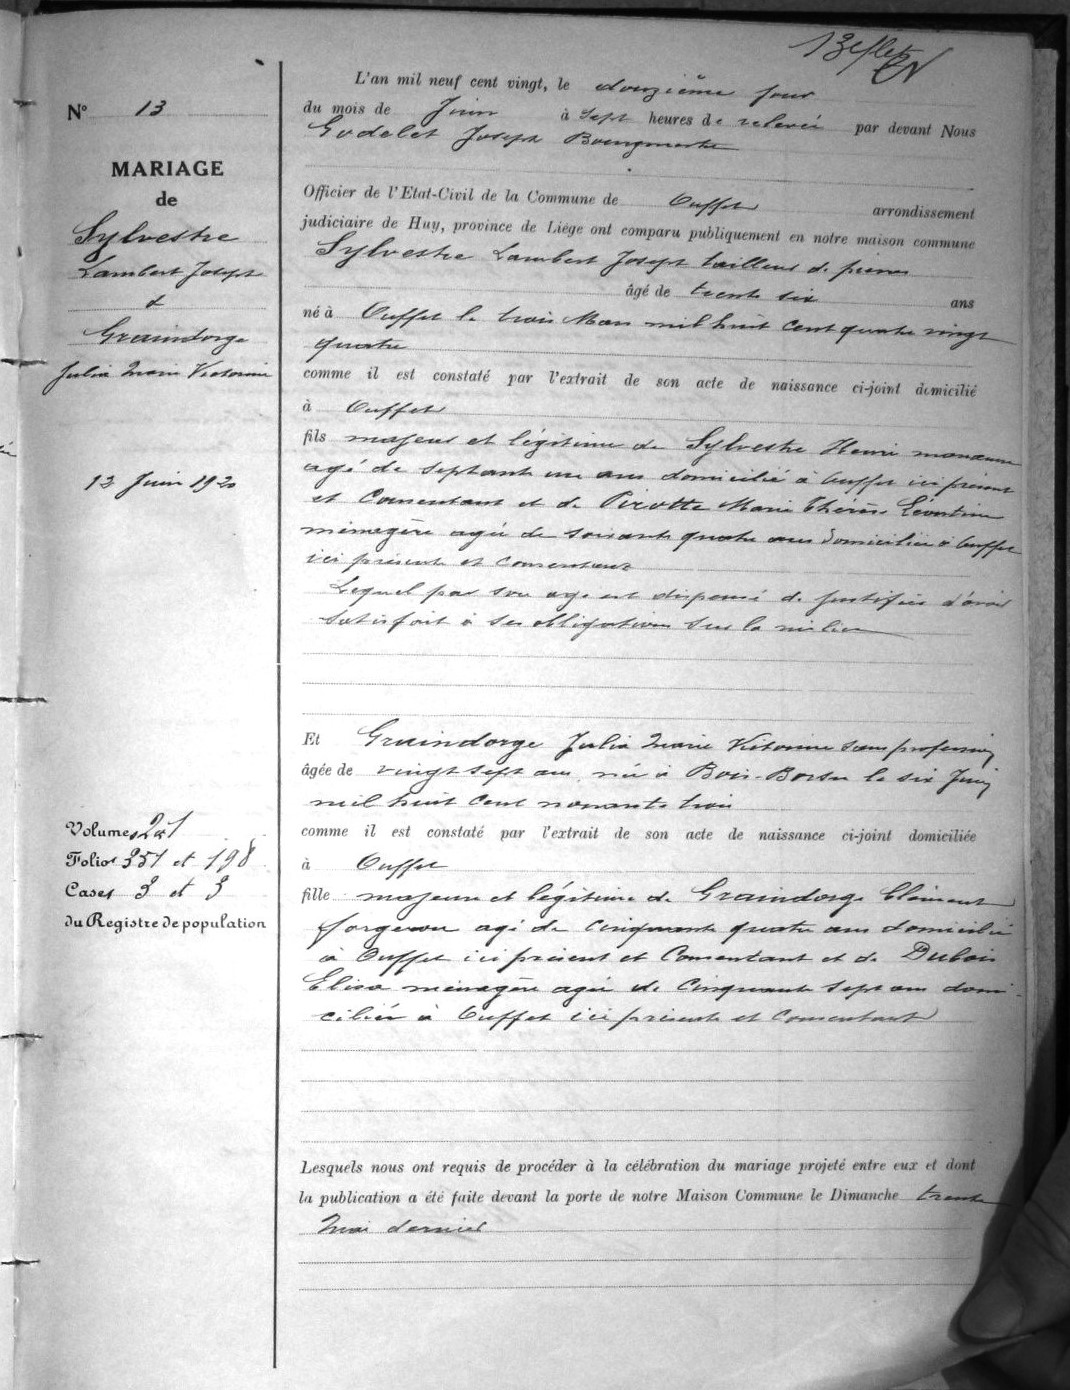 13e flet
N° 13
MARIAGE
de
Sylvestre
Lambert Joseph
&
Graindorge
Julia Marie Victorine
12 Juin 1920
Volumes 2 et 1
Folios 351 et 198
Cases 3 et 3
du Registre de population
L'an mil neuf cent vingt, le douzième jour
du mois de Juin à Sept heures de relevée par devant Nous
Godelet Joseph Bourgmestre
Officier de l'Etat-Civil de la Commune de Ouffet arrondissement
judiciaire de Huy, province de Liège ont comparu publiquement en notre maison commune
Sylvestre Lambert Joseph tailleur de pierres
âgé de trente six ans
né à Ouffet le trois Mars mil huit cent quatre vingt
quatre
comme il est constaté par l'extrait de son acte de naissance ci-joint domicilié
à Ouffet
fils majeur et légitime de Sylvestre Henri
agé de septante un ans domicilié à Ouffet ici présent
et Consentant et de Pirotte Marie Thérèse Léontine
ménagère agée de soixante quatre ans domiciliée à Ouffet
ici présente et consentante
Lequel par son age est dispensé de justifier d'avoir
satisfait à ses obligations sur la milice
Et Graindorge Julia Marie Victorine sans profession
âgée de vingt sept ans née à Bois-Borsu le six Juin
mil huit cent nonante trois
comme il est constaté par l'extrait de son acte de naissance ci-joint domiciliée
à Ouffet
fille majeure et légitime de Graindorge Clément
forgeron agé de Cinquante quatre ans domicilié
à Ouffet ici présent et Consentant et de Dubois
Elisa ménagère agée de Cinquante sept ans domi-
ciliée à Ouffet ici présente et Consentante
Lesquels nous ont requis de procéder à la célébration du mariage projeté entre eux et dont
la publication a été faite devant la porte de notre Maison Commune le Dimanche trente
Mai dernier